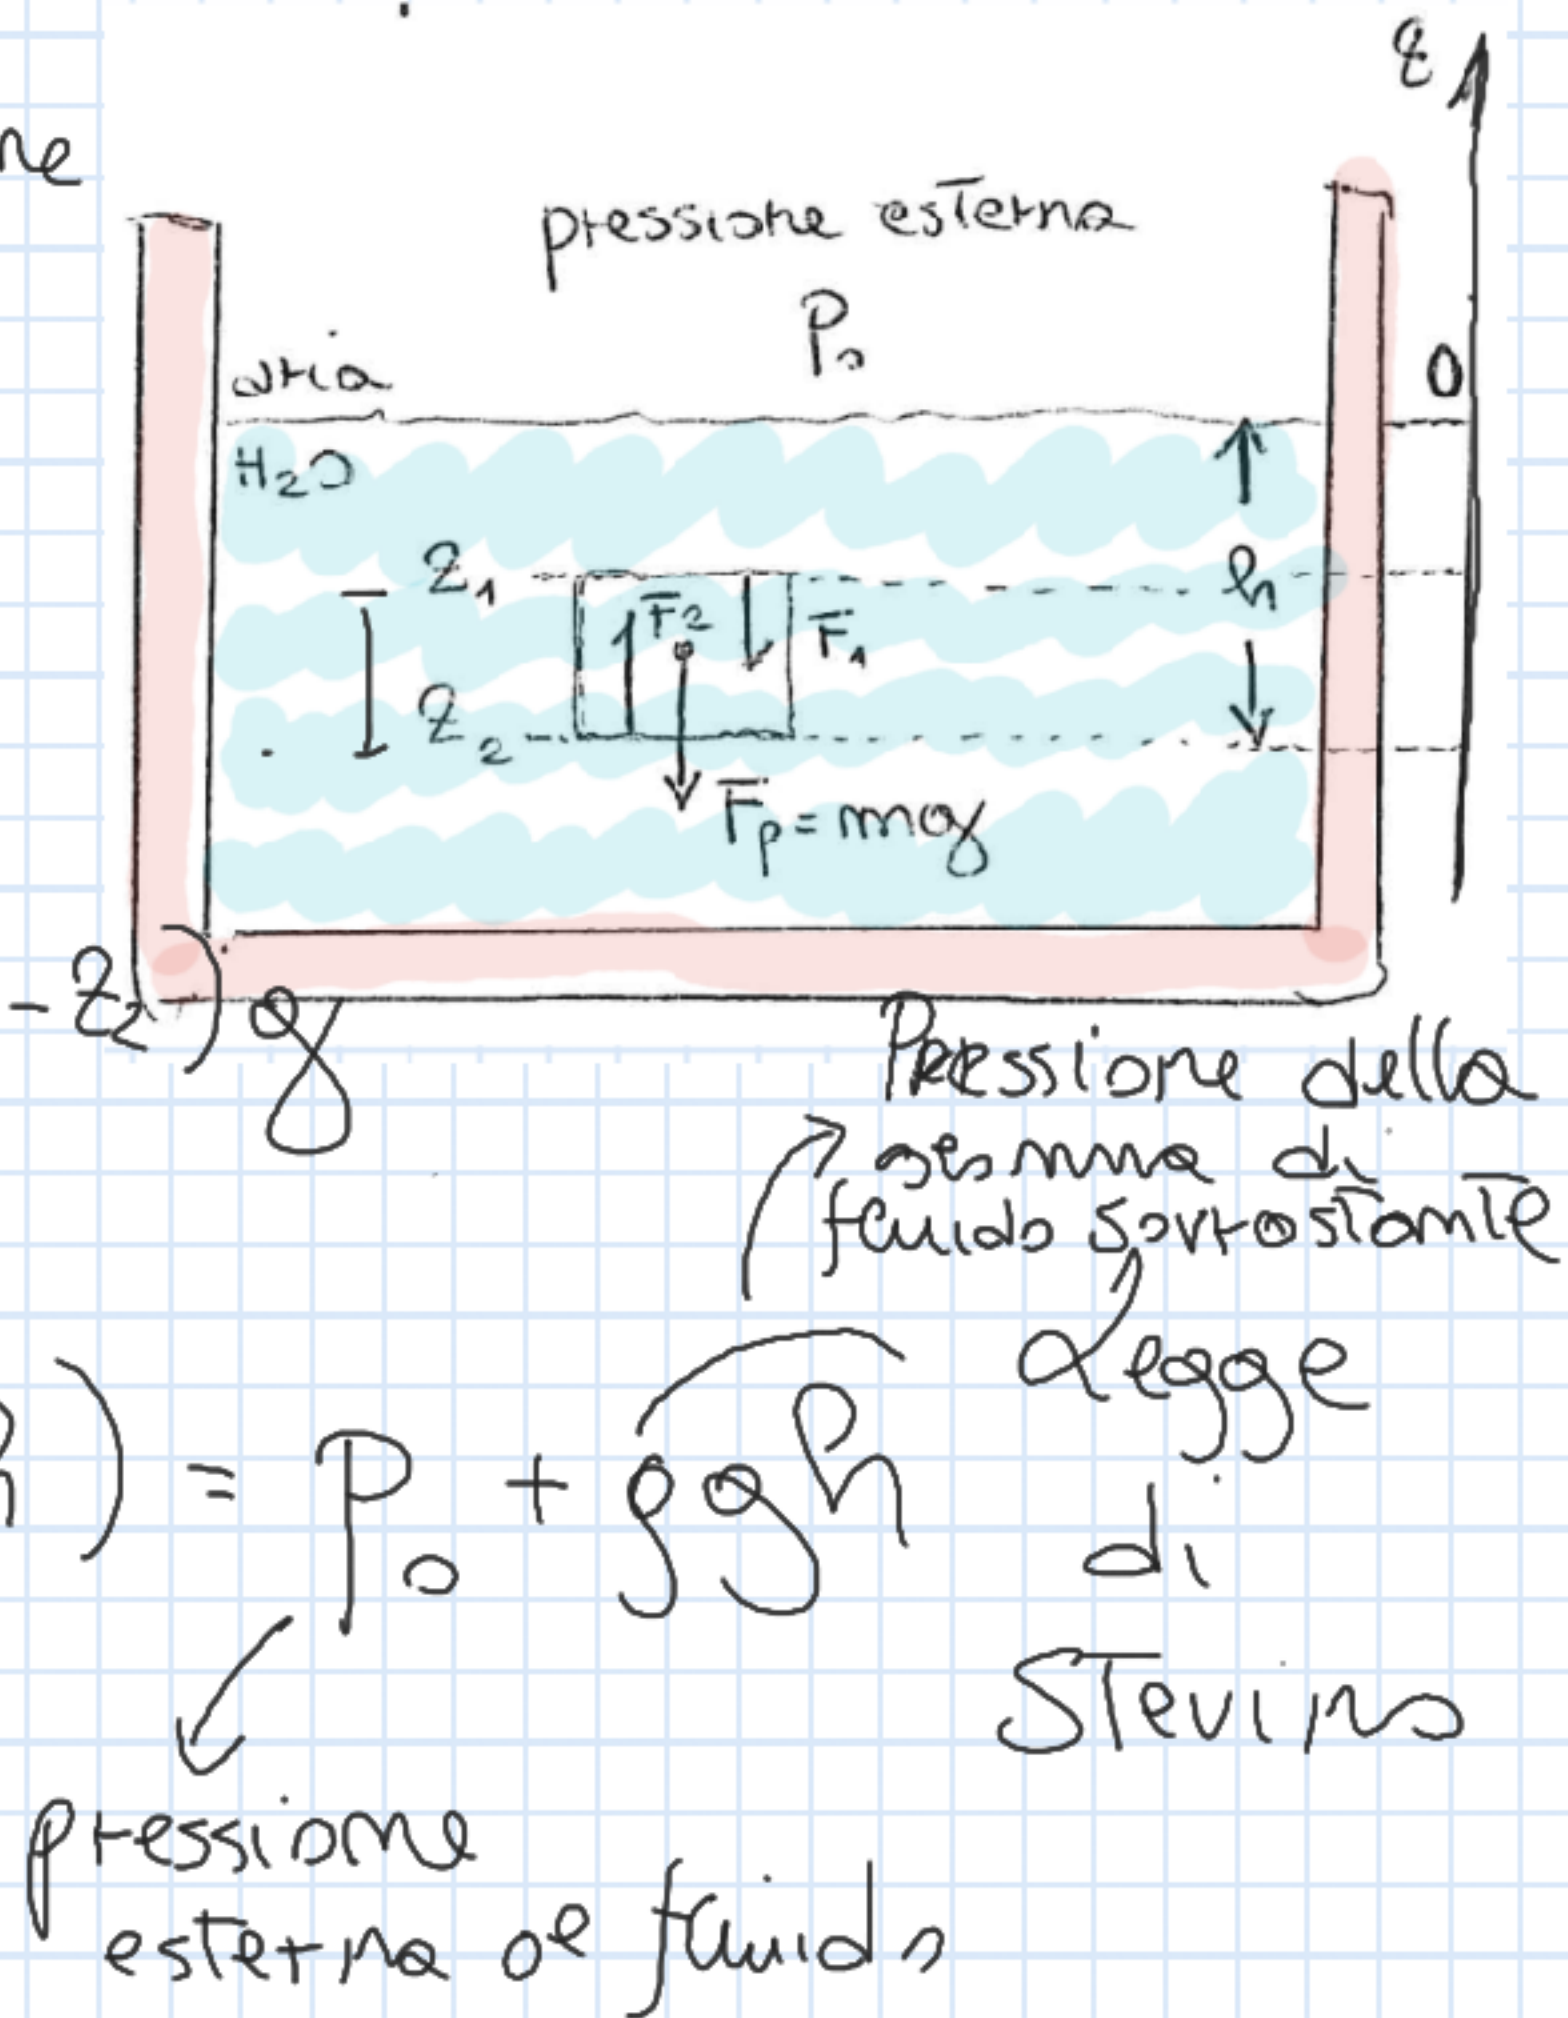 ne
z
pressione esterna
P₀
aria
0
H₂O
Z₁
h
F₂
F₁
Z₂
Fp = mg
- Z₂) g
Pressione della
fluido sovrastante
Legge
h) = P₀ + ρgh
di
Stevino
pressione
esterna al fluido